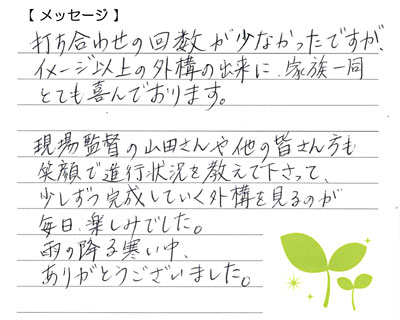 【 メッセージ 】
打ち合わせの回数が少なかったですが、
イメージ以上の外構の出来に、家族一同
とても喜んでおります。
現場監督の山田さんや他の皆さん方も
笑顔で進行状況を教えて下さって、
少しずつ完成していく外構を見るのが
毎日、楽しみでした。
雨の降る寒い中、
ありがとうございました。